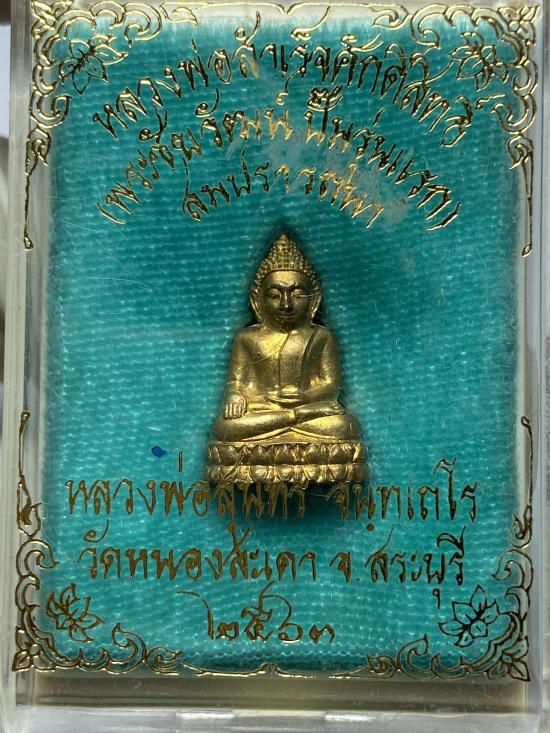 หลวงพ่อสำเร็จศักดิ์สิทธิ์
(พระชัยวัฒน์ ปั๊มรุ่นแรก)
สมปรารถนา
หลวงพ่อสุนทร จนฺทเตโร
วัดหนองสะเดา จ.สระบุรี
๒๕๖๓